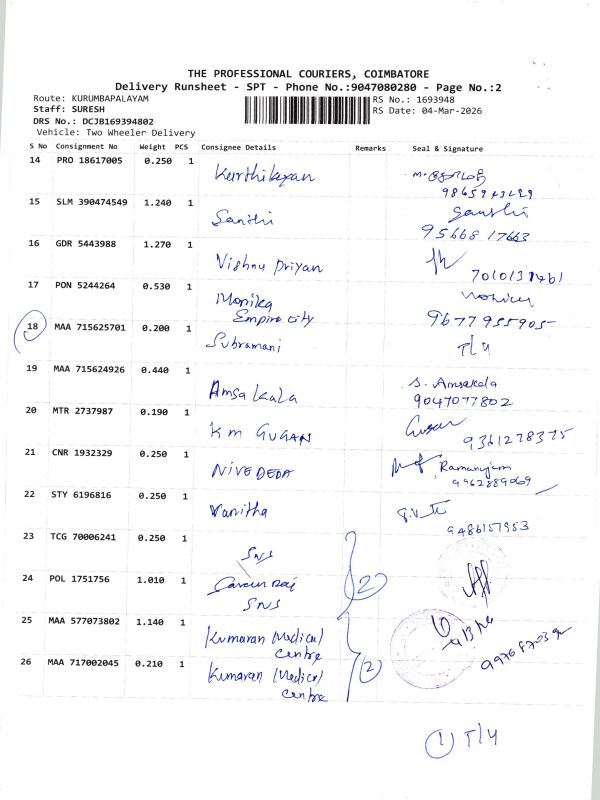 THE PROFESSIONAL COURIERS, COIMBATORE
Delivery Runsheet - SPT - Phone No.:9047080280 - Page No.:2
Route: KURUMBAPALAYAM
RS No.: 1693948
Staff: SURESH
RS Date: 04-Mar-2026
DRS No.: DCJB169394802
Vehicle: Two Wheeler Delivery
S No Consignment No Weight PCS Consignee Details Remarks Seal & Signature
14 PRO 18617005 0.250 1
Karthikeyan
15 SLM 390474549 1.240 1
Santhi
9566817663
16 GDR 5443988 1.270 1
Vishnu Priyan
17 PON 5244264 0.530 1
Monika
Empire city
9677955905
18 MAA 715625701 0.200 1
Subramani
T/4
19 MAA 715624926 0.440 1
Amsa kala
S. Amsakala
9047077802
20 MTR 2737987 0.190 1
KM GUGAN
9361278375
21 CNR 1932329 0.250 1
NIVEDEDA
Ramanujam
9962889069
22 STY 6196816 0.250 1
Vanitha
9486157953
23 TCG 70006241 0.250 1
SNS
24 POL 1751756 1.010 1
SNS
(2)
25 MAA 577073802 1.140 1
Kumaran Medical
Centre
26 MAA 717002045 0.210 1
Kumaran Medical
Centre
(2)
(1) T/4